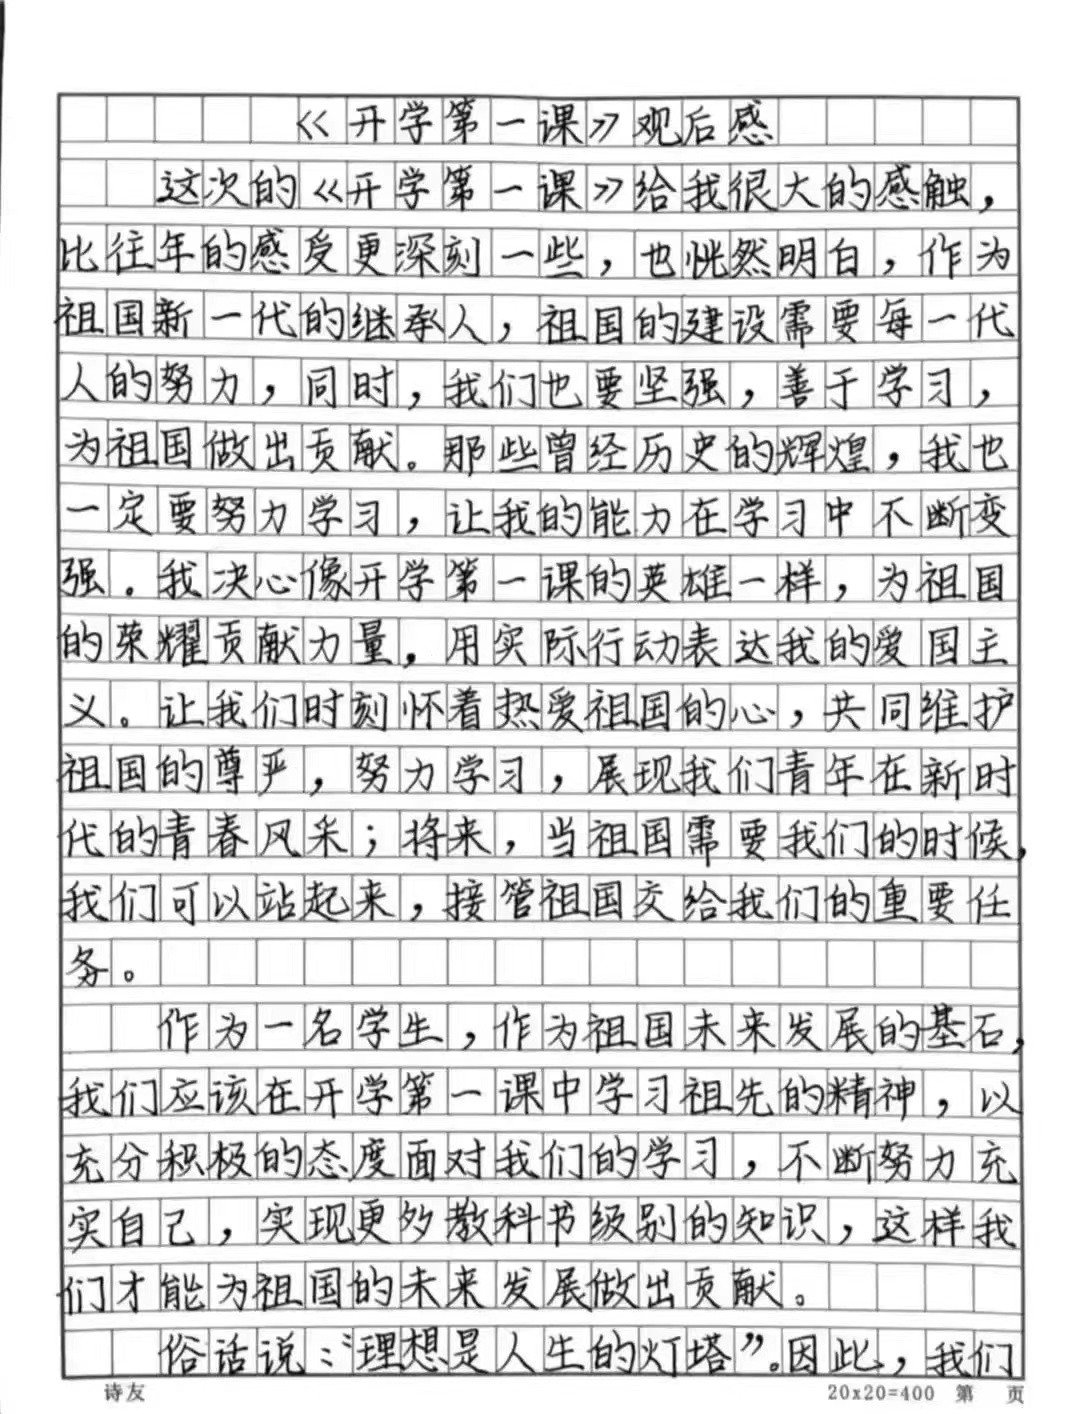 《开学第一课》观后感
这次的《开学第一课》给我很大的感触，
比往年的感受更深刻一些，也恍然明白，作为
祖国新一代的继承人，祖国的建设需要每一代
人的努力，同时，我们也要坚强，善于学习，
为祖国做出贡献。那些曾经历史的辉煌，我也
一定要努力学习，让我的能力在学习中不断变
强。我决心像开学第一课的英雄一样，为祖国
的荣耀贡献力量，用实际行动表达我的爱国主
义。让我们时刻怀着热爱祖国的心，共同维护
祖国的尊严，努力学习，展现我们青年在新时
代的青春风采；将来，当祖国需要我们的时候，
我们可以站起来，接管祖国交给我们的重要任
务。
作为一名学生，作为祖国未来发展的基石，
我们应该在开学第一课中学习祖先的精神，以
充分积极的态度面对我们的学习，不断努力充
实自己，实现更多教科书级别的知识，这样我
们才能为祖国的未来发展做出贡献。
俗话说：“理想是人生的灯塔”。因此，我们
诗友 20x20=400 第 页